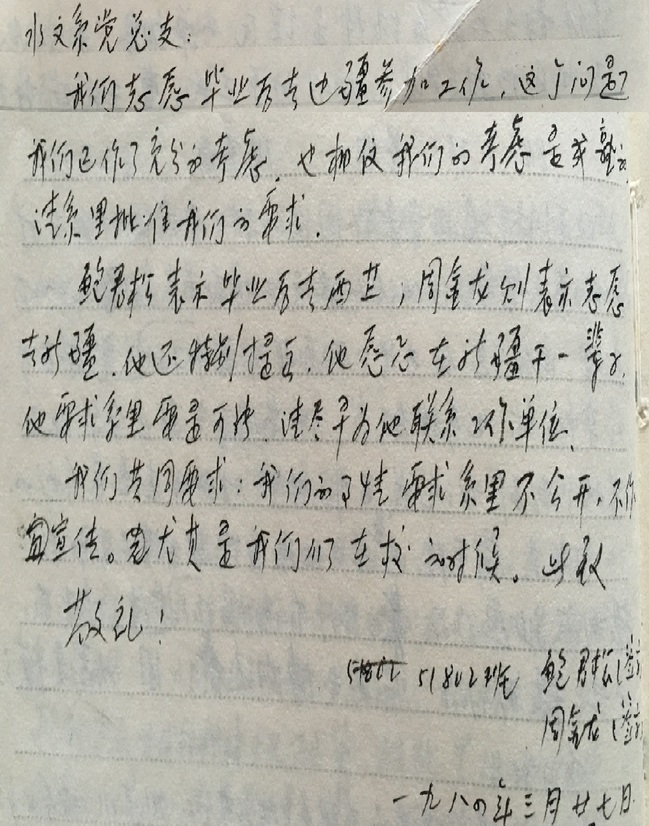 水文系党总支:
我们志愿毕业后去边疆参加工作,这个问题
我们已作了充分的考虑,也相信我们的考虑是成熟的
请系里批准我们的要求.
鲍君松表示毕业后去西藏;周金龙则表示志愿
去新疆.他还特别提出,他愿意在新疆干一辈子.
他要求系里要是可能,请尽早为他联系工作单位.
我们共同要求:我们的事情要求系里不公开,不作
宣传。尤其是我们在校的时候。此致
敬礼!
51802 51802班 鲍君松(签
周金龙(签
一九八四年三月廿七日